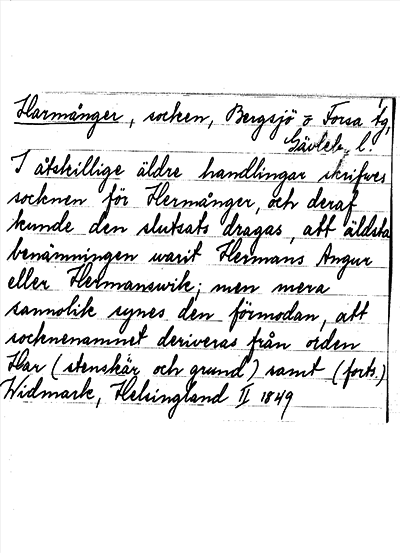 Harmånger, socken, Bergsjö o Forsa tg,
Gävleb. l.
I åtskillige äldre handlingar skrifves
socknen för Hermånger, och deraf
kunde den slutsats dragas, att äldsta
benämningen warit Hermans Angur
eller Hermanswik; men mera
sannolik synes den förmodan, att
socknenamnet deriveras från orden
Har (stenskär och grund) samt (forts.)
Widmark, Helsingland II 1849